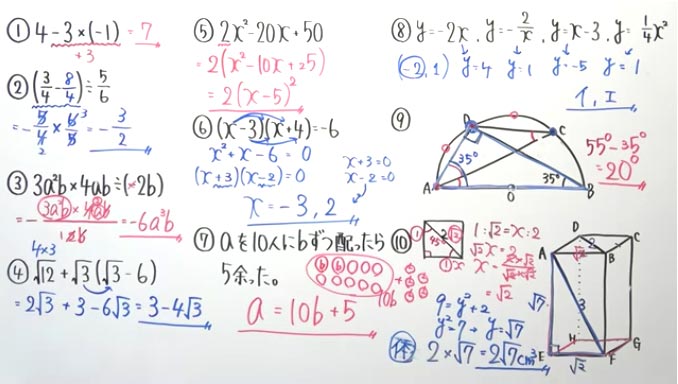 ① 4-3×(-1)=7
+3
② (3/4-8/4)÷5/6
=-5/4×6/5=-3/2
2 3
③ 3a²b×4ab÷(-2b)
=-3a²b×4ab/2b=-6a³b
4×3
④ √12+√3(√3-6)
=2√3+3-6√3=3-4√3
⑤ 2x²-20x+50
=2(x²-10x+25)
=2(x-5)²
⑥ (x-3)(x+4)=-6
x²+x-6=0
(x+3)(x-2)=0
x+3=0
x-2=0
x=-3,2
⑦ aを10人にbずつ配ったら
5余った。
b b
10b
a=10b+5
⑧ y=-2x, y=-2/x, y=x-3, y=1/4x²
(-2,1) y=4 y=1 y=-5 y=1
イ,エ
⑨
D
C
35°
35°
A
O
B
55°-35°
=20°
⑩
1:√2=x:2
√2x=2
=√2
9=y²+2
y²=7 y=√7
体 2×√7=2√7cm³
D
C
2
A
√2
B
√7
3
H
G
E
F
√2